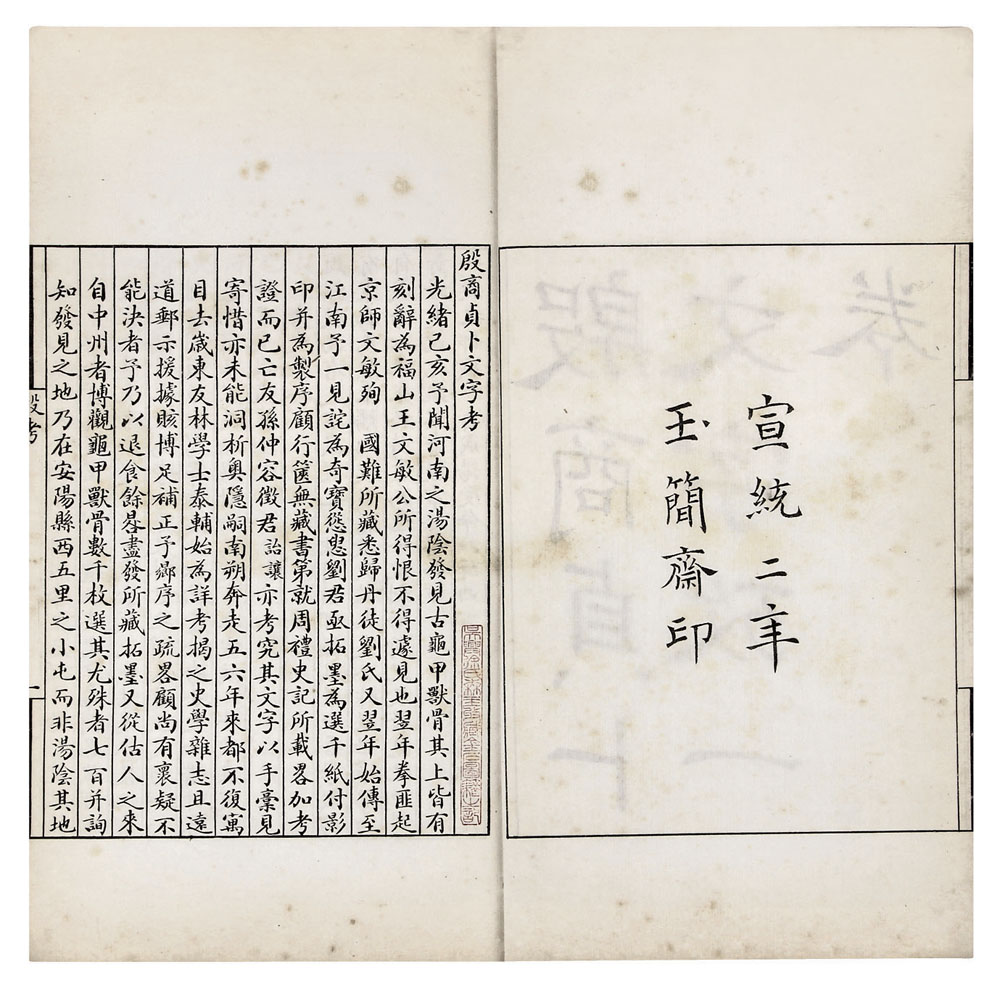 宣統二年
玉簡齋印
殷商貞卜文字考
光緒己亥予聞河南之湯陰發見古龜甲獸骨其上皆有
刻辭為福山王文敏公所得恨不得遽見也翌年拳匪起
京師文敏殉　國難所藏悉歸丹徒劉氏又翌年始傳至
江南予一見詫為奇寶慫恿劉君亟拓墨為選千紙付影
印并為製序顧行篋無藏書第就周禮史記所載畧加考
證而已亡友孫仲容徵君詒讓亦考究其文字以手稾見
寄惜亦未能洞析奧隱嗣南朔奔走五六年來都不復寓
目去歲東友林學士泰輔始為詳考揭之史學雜志且遠
道郵示援據賅博足補正予曏序之疏畧顧尚有褱疑不
能決者予乃以退食餘晷盡發所藏拓墨又從估人之來
自中州者博觀龜甲獸骨數千枚選其尤殊者七百并詢
知發見之地乃在安陽縣西五里之小屯而非湯陰其地
殷考
一